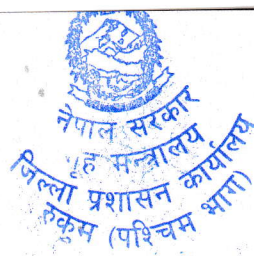 नेपाल सरकार
गृह मन्त्रालय
जिल्ला प्रशासन कार्यालय
रुकुम (पश्चिम भाग)